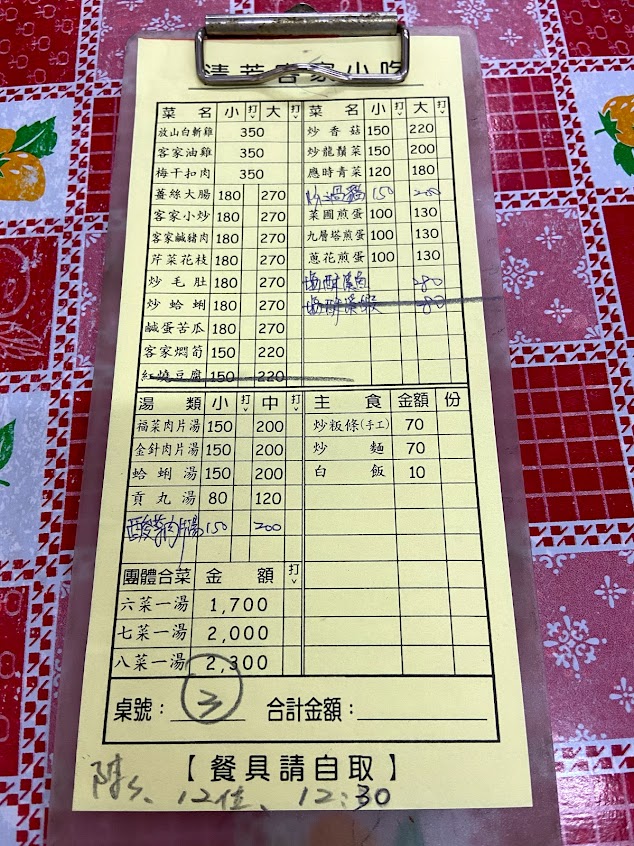 客家小吃
菜 名 小 打ˇ 大 打ˇ 菜 名 小 打ˇ 大 打ˇ
放山白斬雞 350 炒香菇 150 220
客家油雞 350 炒龍鬚菜 150 200
梅干扣肉 350 應時青菜 120 180
薑絲大腸 180 270 水過貓 150 200
客家小炒 180 270 菜圃煎蛋 100 130
客家鹹豬肉 180 270 九層塔煎蛋 100 130
芹菜花枝 180 270 蔥花煎蛋 100 130
炒毛肚 180 270 塩酥溪魚 280
炒蛤蜊 180 270 塩酥溪蝦 280
鹹蛋苦瓜 180 270
客家燜筍 150 220
紅燒豆腐 150 220
湯 類 小 打ˇ 中 打ˇ 主 食 金額 份
福菜肉片湯 150 200 炒粄條(手工) 70
金針肉片湯 150 200 炒麵 70
蛤蜊湯 150 200 白飯 10
貢丸湯 80 120
酸菜肉片湯 150 200
團體合菜 金 額 打ˇ
六菜一湯 1,700
七菜一湯 2,000
八菜一湯 2,300
桌號: 3 合計金額:
【餐具請自取】
陳s、12位、12:30